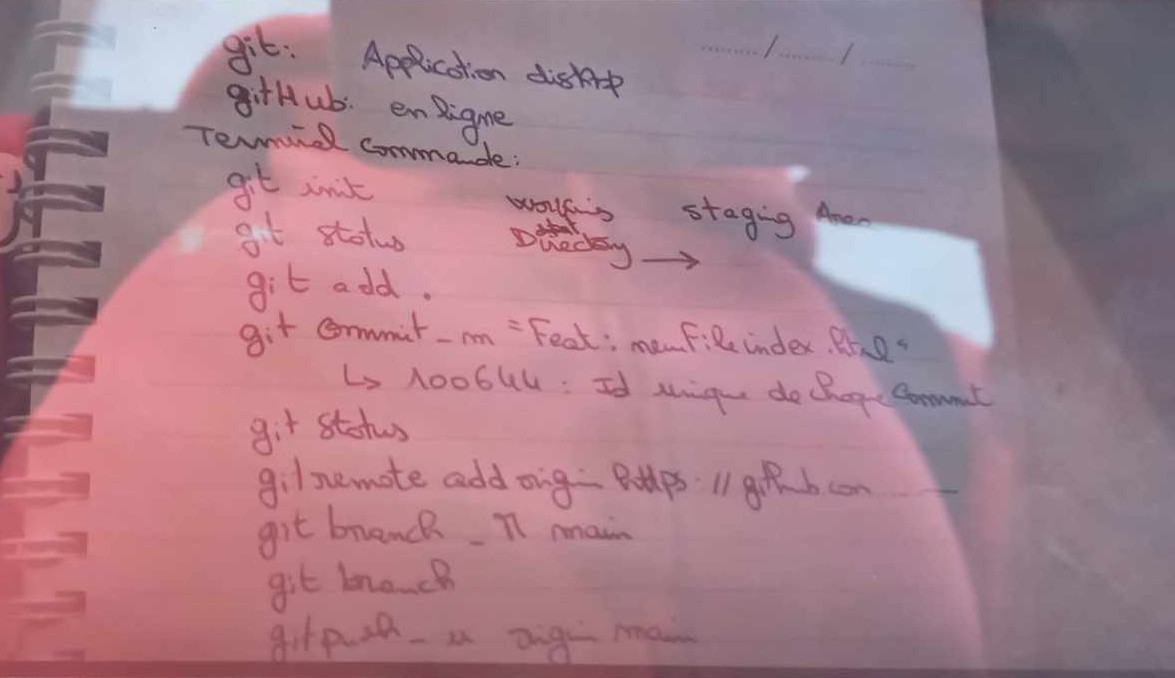 git: Application disktop
gitHub: en ligne
Terminal commande:
git init
working staging Area
git status Directory →
git add .
git commit -m "Feat: new File index.html"
↳ 100644 : Id unique de chaque commit
git status
git remote add origin https://github.com
git branch -M main
git branch
git push -u origin main